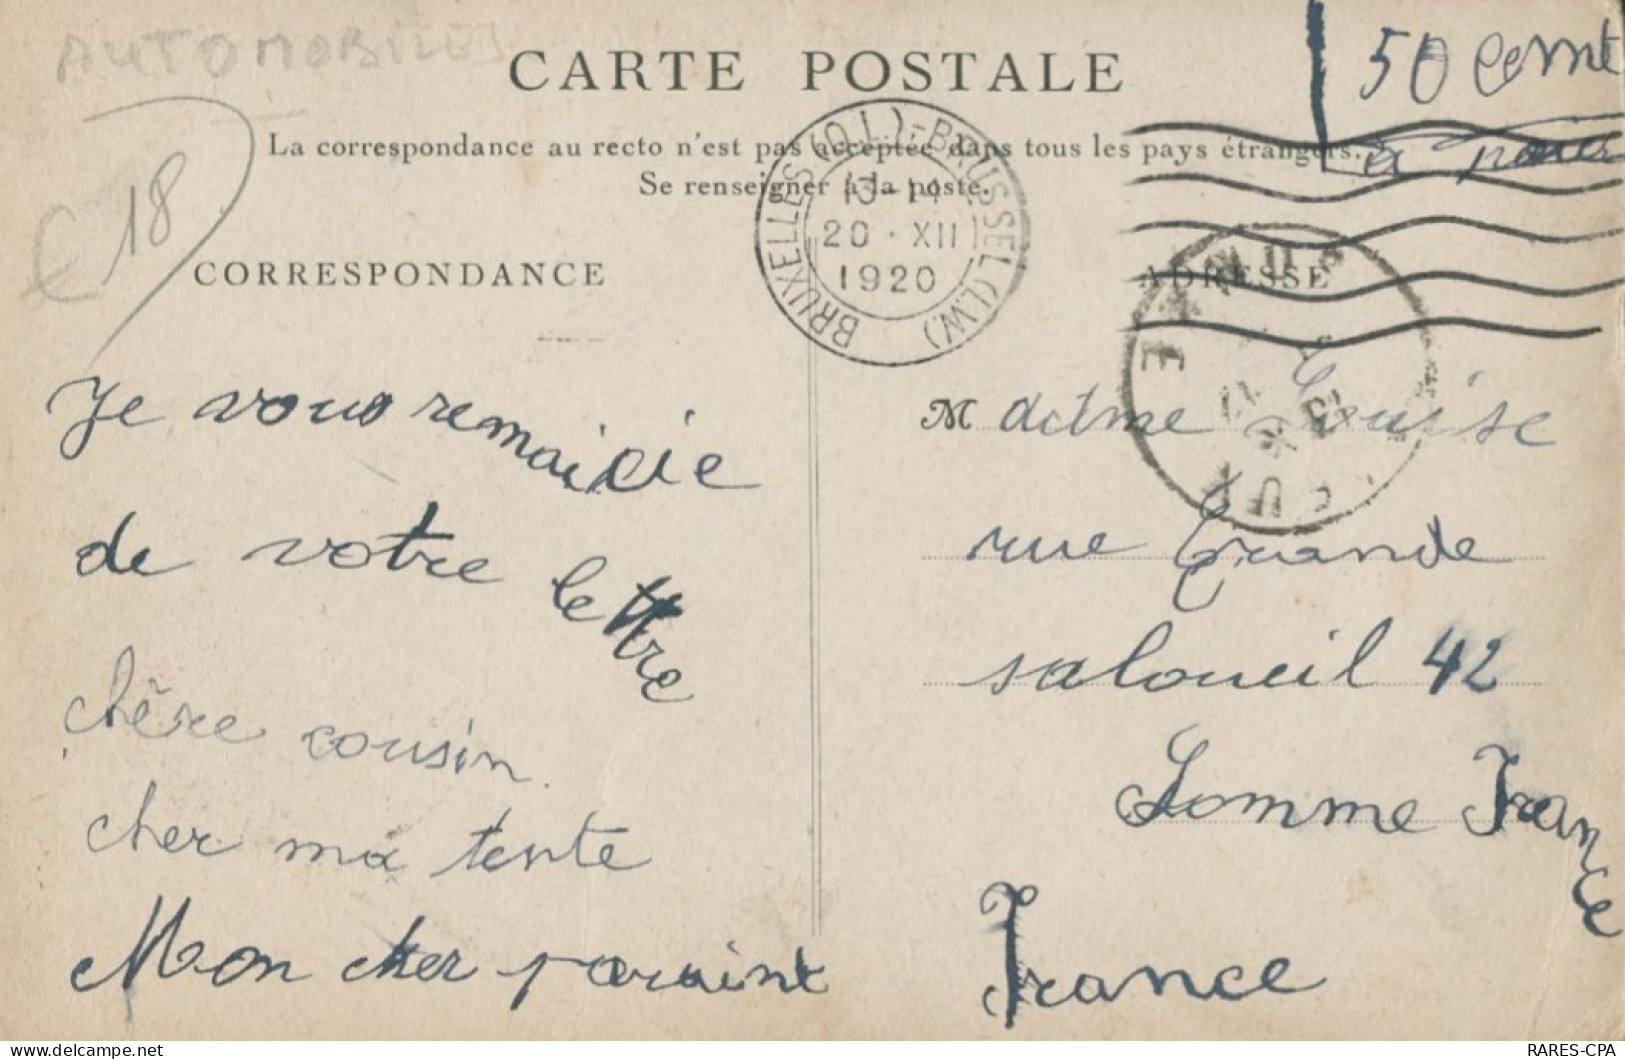 AUTOMOBILES
CARTE POSTALE
50 cemt
La correspondance au recto n'est pas acceptée dans tous les pays étrangers.
à
Se renseigner à la poste.
€ 18
BRUXELLES (Q.L.) - BRUSSEL (L.W.)
13-14
20 · XII
1920
CORRESPONDANCE
ADRESSE
Je vous remaicie
de votre lettre
chère cousin
cher ma tente
Mon cher paraint
Madame Louise
rue Grande
saloueil 42
Somme France
France
RARES-CPA